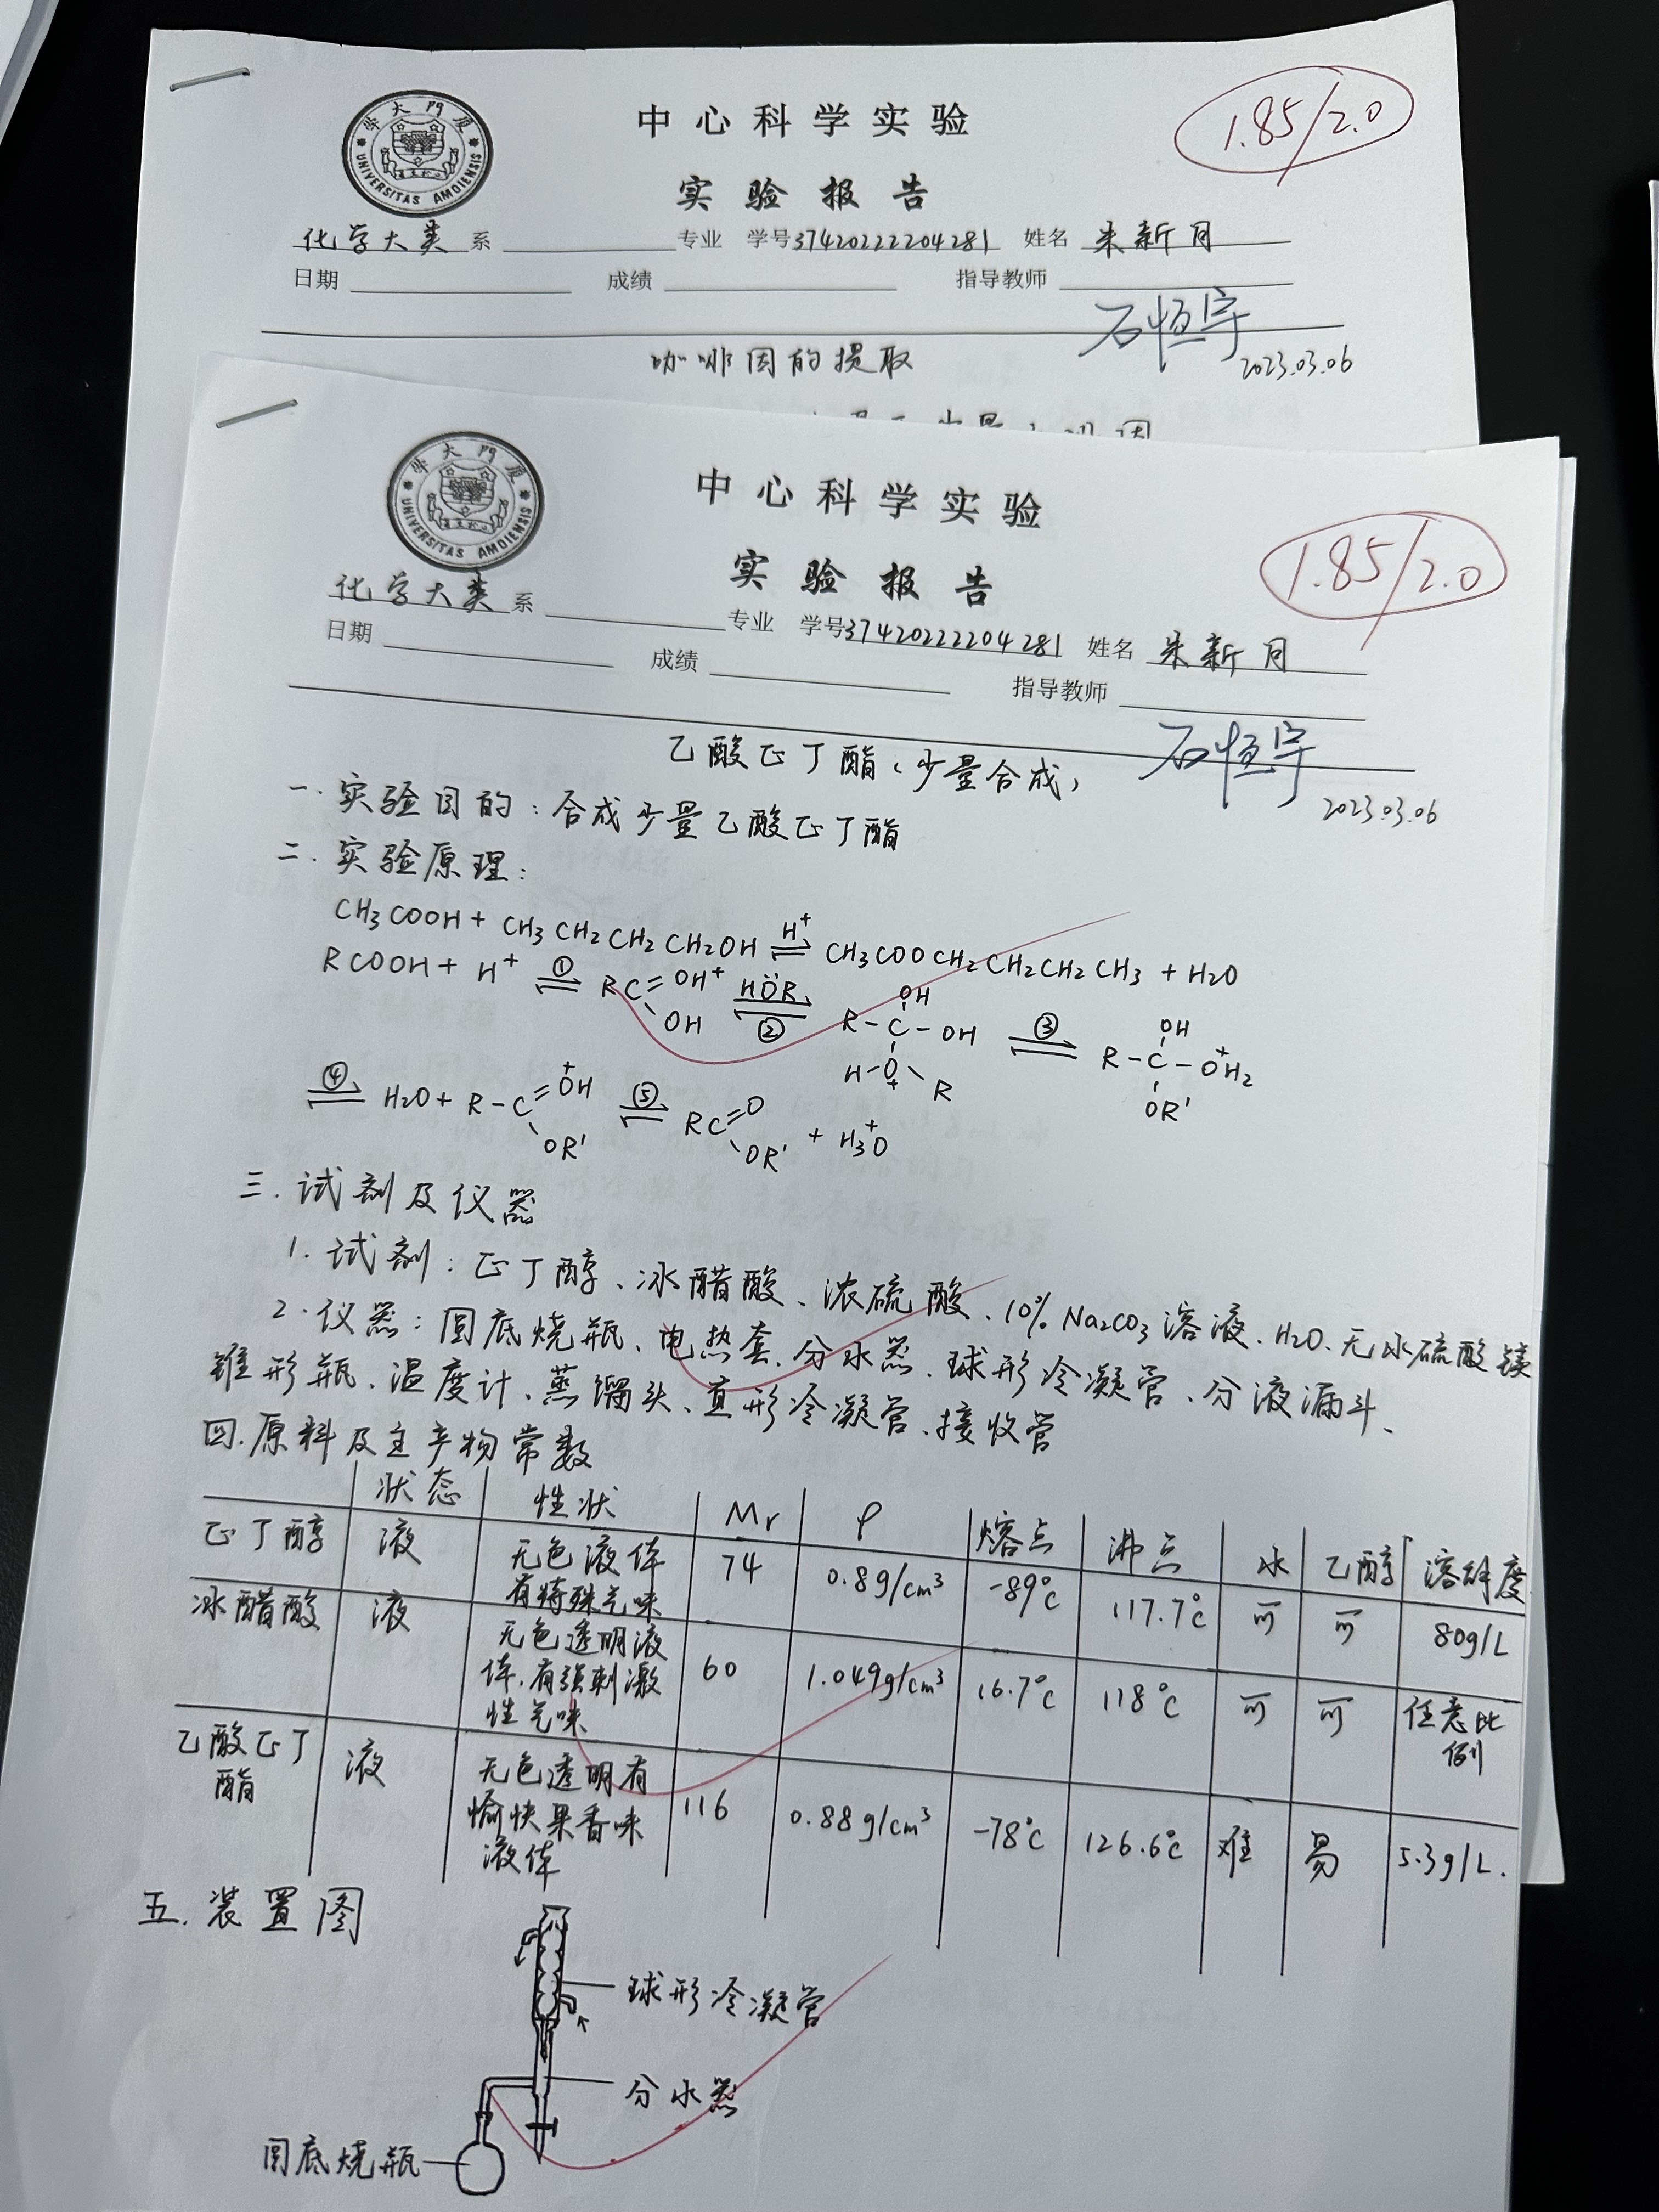 廈門大學
UNIVERSITAS AMOIENSIS
中心科学实验
1.85/2.0
实验报告
化学大类 系 专业 学号 37420222204281 姓名 朱新月
日期 成绩 指导教师
石恒宇
咖啡因的提取
2023.03.06
廈門大學
UNIVERSITAS AMOIENSIS
中心科学实验
1.85/2.0
实验报告
化学大类 系 专业 学号 37420222204281 姓名 朱新月
日期 成绩 指导教师
石恒宇
乙酸正丁酯(少量合成)
2023.03.06
一.实验目的:合成少量乙酸正丁酯
二.实验原理:
CH3COOH + CH3CH2CH2CH2OH ⇌ H+ CH3COOCH2CH2CH2CH3 + H2O
RCOOH + H+ ⇌ ① RC=OH+ OH ⇌ HÖR ② R-C-OH OH H-O+ R ⇌ ③ R-C-OH2+ OH OR'
⇌ ④ H2O + R-C=OH+ OR' ⇌ ⑤ RC=O OR' + H3O+
三.试剂及仪器
1.试剂:正丁醇、冰醋酸、浓硫酸、10% Na2CO3溶液、H2O、无水硫酸镁
2.仪器:圆底烧瓶、电热套、分水器、球形冷凝管、分液漏斗、
锥形瓶、温度计、蒸馏头、直形冷凝管、接收管
四.原料及主产物常数
状态 性状 Mr ρ 熔点 沸点 水 乙醇 溶解度
正丁醇 液 无色液体有特殊气味 74 0.8g/cm3 -89℃ 117.7℃ 可 可 80g/L
冰醋酸 液 无色透明液体,有强刺激性气味 60 1.049g/cm3 16.7℃ 118℃ 可 可 任意比例
乙酸正丁酯 液 无色透明有愉快果香味液体 116 0.88g/cm3 -78℃ 126.6℃ 难 易 5.3g/L.
五.装置图
球形冷凝管
分水器
圆底烧瓶